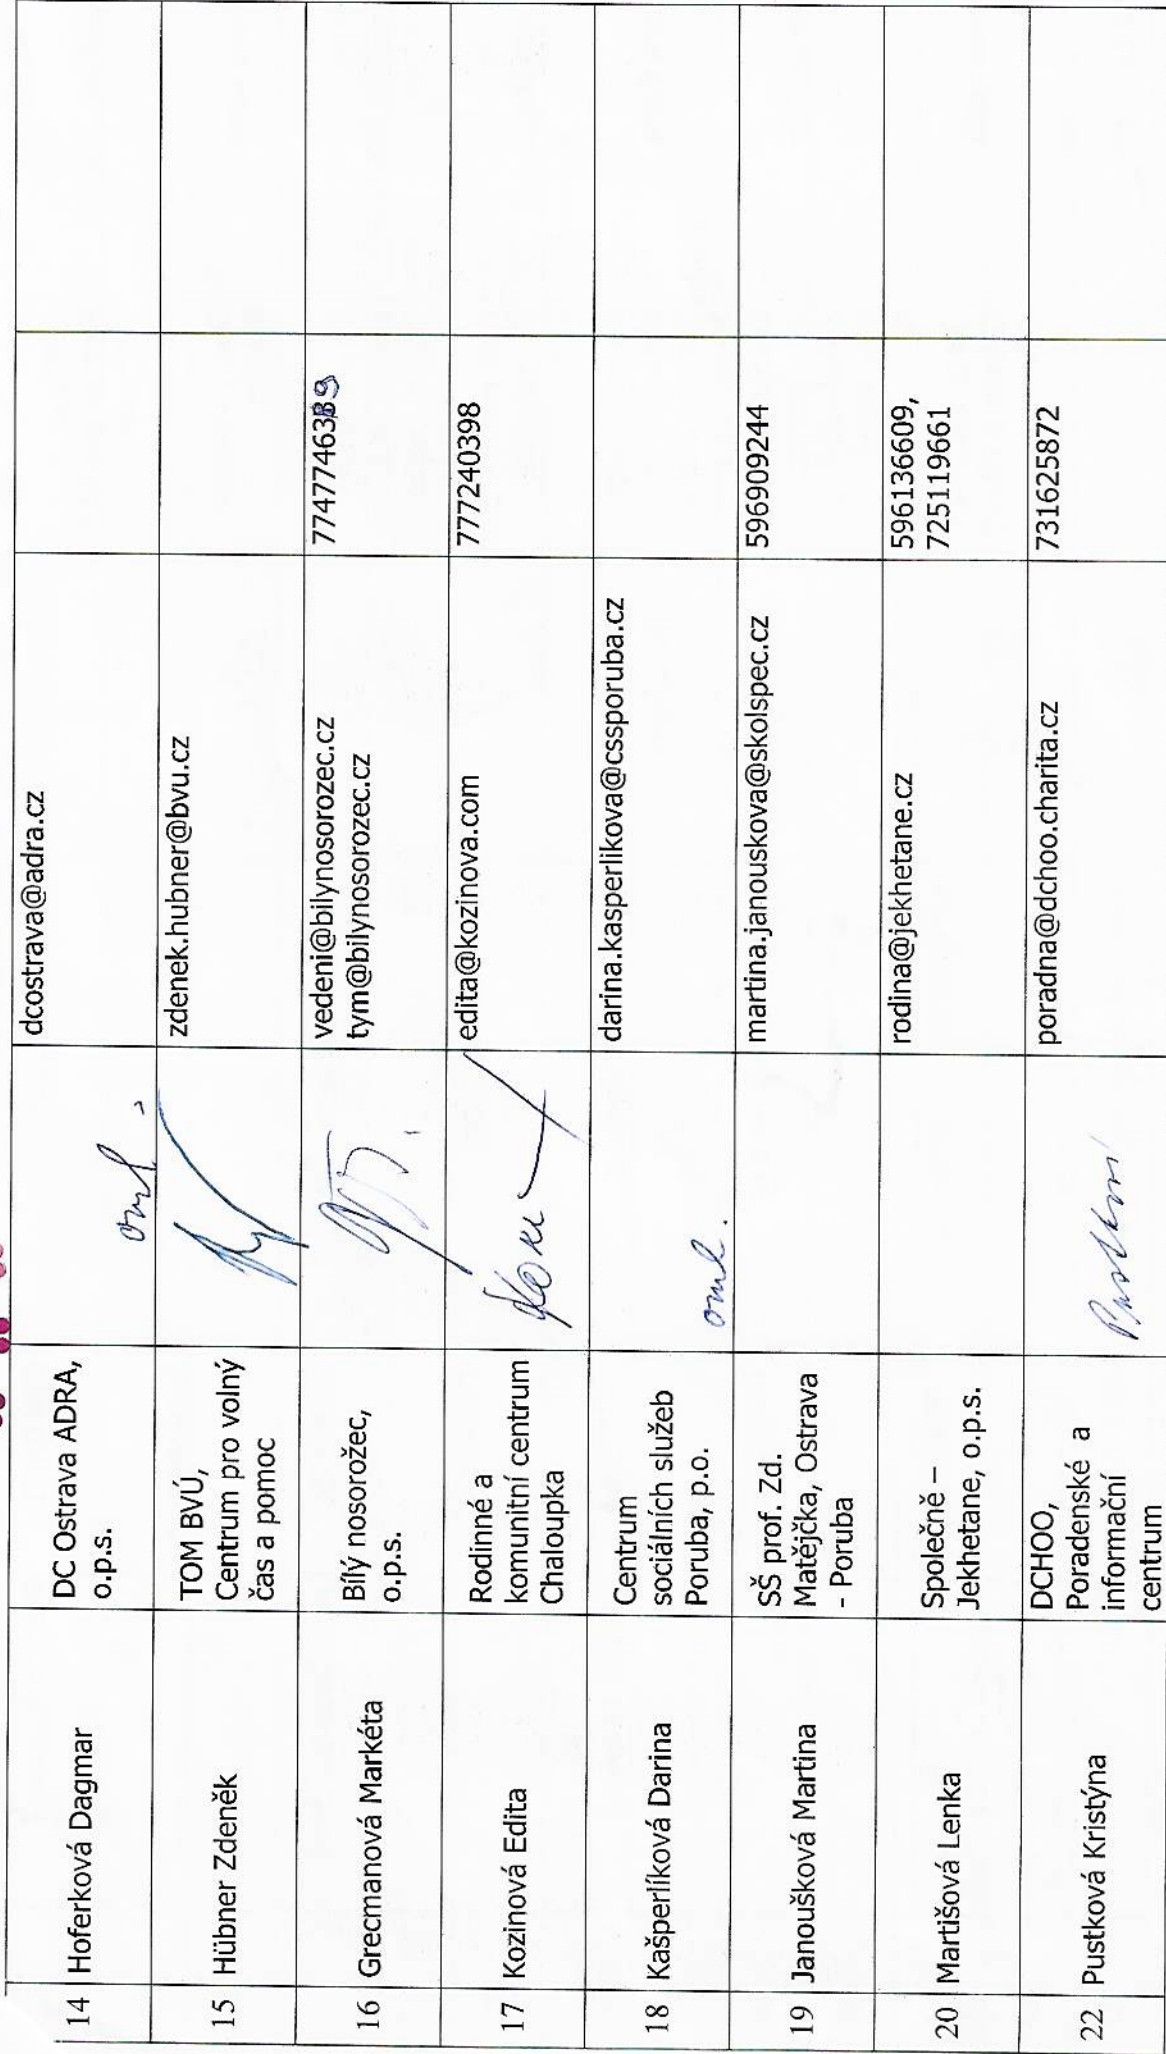 14 Hoferková Dagmar
DC Ostrava ADRA,
o.p.s.
oml.
dcostrava@adra.cz
15 Hübner Zdeněk
TOM BVÚ,
Centrum pro volný
čas a pomoc
zdenek.hubner@bvu.cz
16 Grecmanová Markéta
Bílý nosorožec,
o.p.s.
vedeni@bilynosorozec.cz
tym@bilynosorozec.cz
17 Kozinová Edita
Rodinné a
komunitní centrum
Chaloupka
edita@kozinova.com
777240398
18 Kašperlíková Darina
Centrum
sociálních služeb
Poruba, p.o.
oml.
darina.kasperlikova@cssporuba.cz
19 Janoušková Martina
SŠ prof. Zd.
Matějčka, Ostrava
- Poruba
martina.janouskova@skolspec.cz
596909244
20 Martišová Lenka
Společně –
Jekhetane, o.p.s.
rodina@jekhetane.cz
596136609,
725119661
22 Pustková Kristýna
DCHOO,
Poradenské a
informační
centrum
poradna@dchoo.charita.cz
731625872